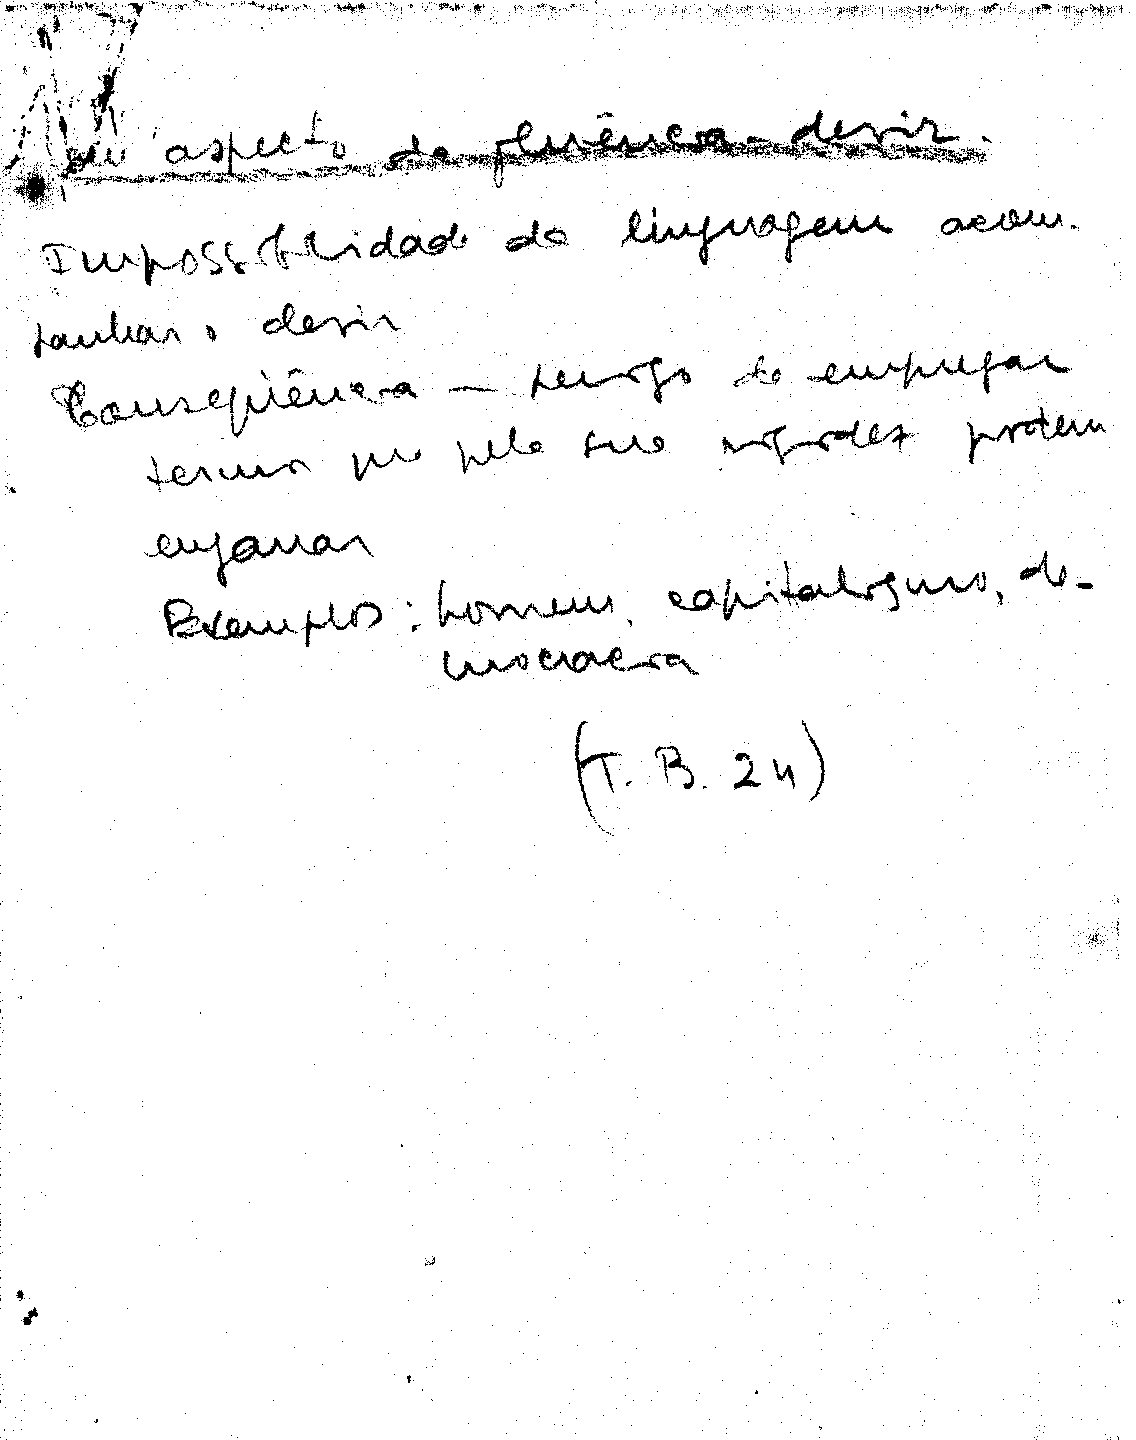 um aspecto da fluência - devir.
Impossibilidade da linguagem acom.
panhar o devir
Conseqüência — perigo de empregar
termos que pela sua rigidez podem
enganar
Exemplos: homem, capitalismo, de-
mocracia
(T. B. 24)